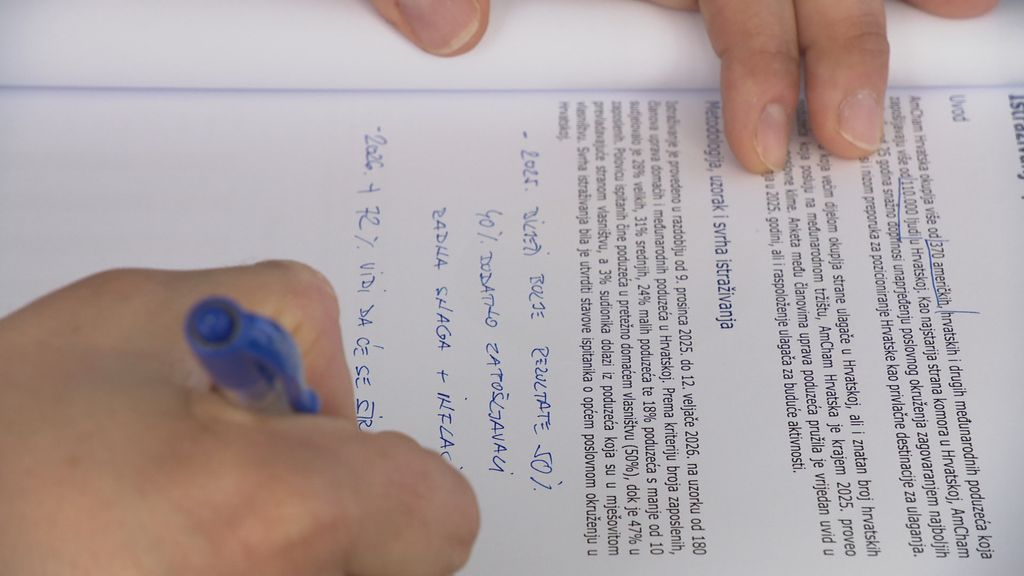 Uvod
AmCham Hrvatska okuplja više od 270 američkih, hrvatskih i drugih međunarodnih poduzeća koja
zapošljavaju više od 110.000 ljudi u Hrvatskoj. Kao najstarija strana komora u Hrvatskoj, AmCham
25 godina snažno doprinosi unaprjeđenju poslovnog okruženja zagovaranjem najboljih
i nizom preporuka za pozicioniranje Hrvatske kao privlačne destinacije za ulaganja.
većim dijelom okuplja strane ulagače u Hrvatskoj, ali i znatan broj hrvatskih
koja posluju na međunarodnom tržištu, AmCham Hrvatska je krajem 2025. proveo
klime. Anketa među članovima uprava poduzeća pružila je vrijedan uvid u
u 2025. godini, ali i raspoloženje ulagača za buduće aktivnosti.
Metodologija, uzorak i svrha istraživanja
Istraživanje je provedeno u razdoblju od 9. prosinca 2025. do 12. veljače 2026. na uzorku od 180
članova uprava domaćih i međunarodnih poduzeća u Hrvatskoj. Prema kriteriju broja zaposlenih,
sudjelovalo je 26% velikih, 31% srednjih, 24% malih poduzeća te 18% poduzeća s manje od 10
zaposlenih. Polovicu ispitanih čine poduzeća u pretežno domaćem vlasništvu (50%), dok je 47% u
prevladavajuće stranom vlasništvu, a 3% sudionika dolazi iz poduzeća koja su u mješovitom
vlasništvu. Svrha istraživanja bila je utvrditi stavove ispitanika o općem poslovnom okruženju u
Hrvatskoj.
- 2025. BILJEŽI BOLJE REZULTATE 50%
40% DODATNO ZAPOŠLJAVALI
RADNA SNAGA + INFLACI
- 2026. + 72% VIDI DA ĆE SE ŠIR